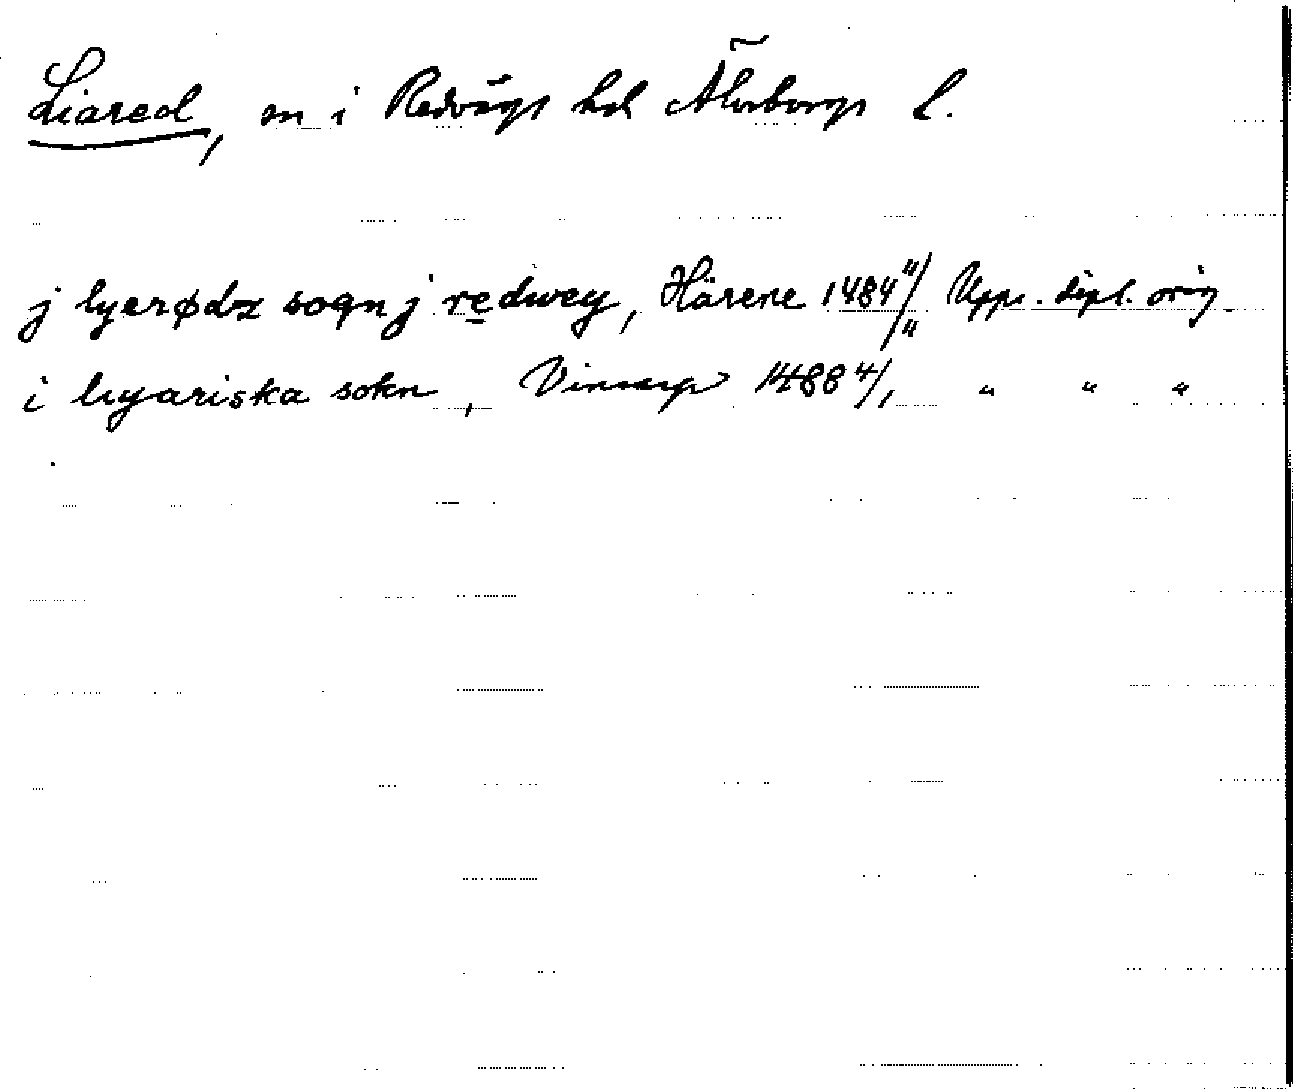 Liared, sn i Redvägs hd Älvsborgs l.
j lyerødz sogn j rędwey, Härene 1484 11/11 Upps. dipl. orig
i lıyariska sokn, Vinsarp 1488 4/1 " " "